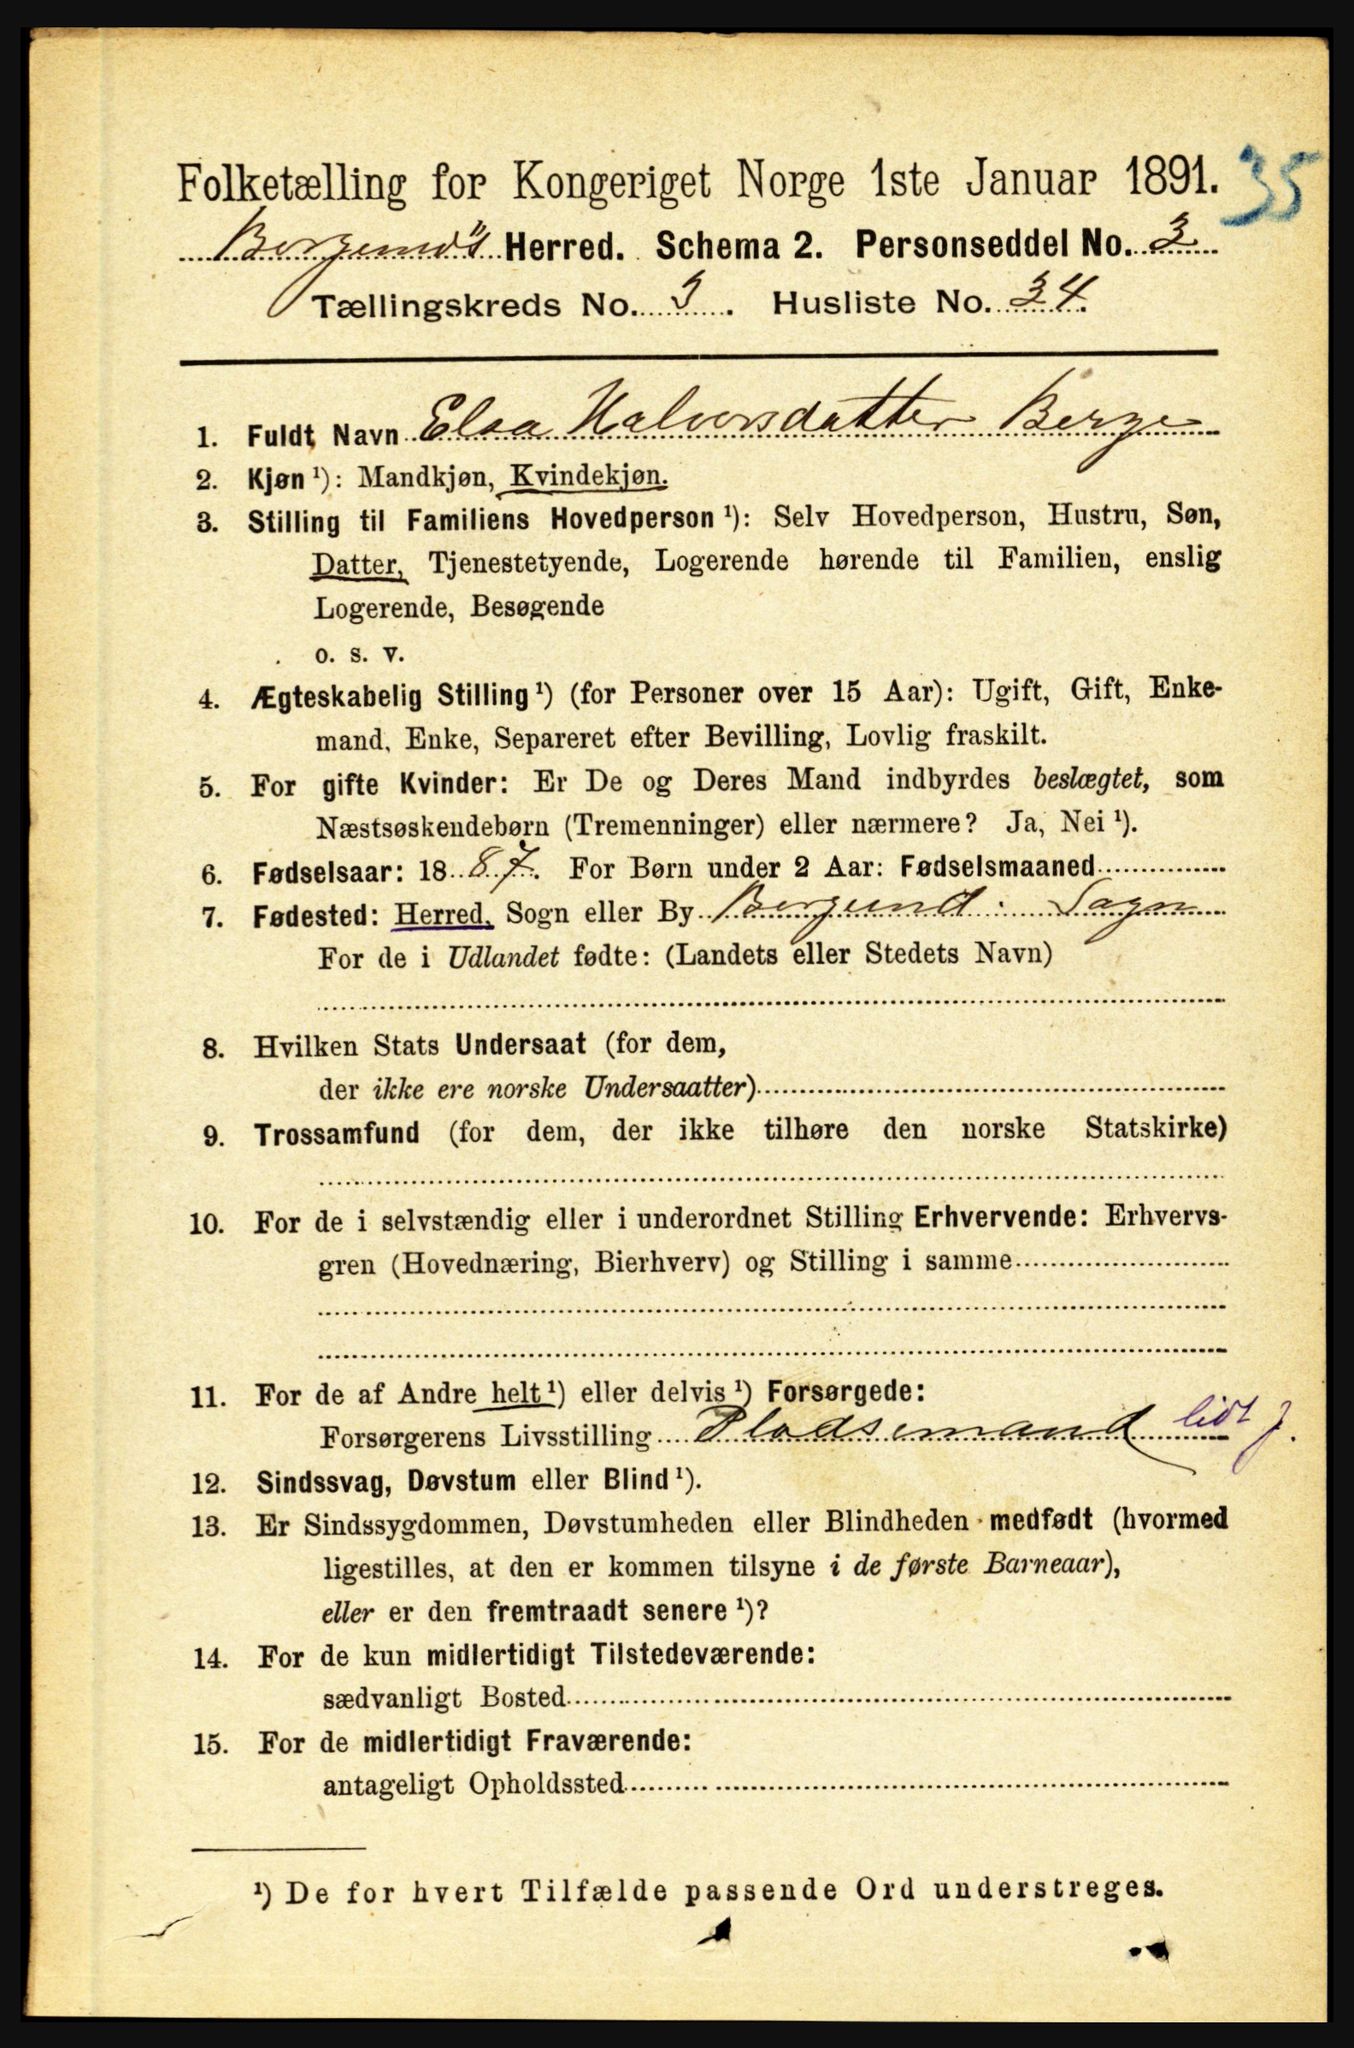 35
Folketælling for Kongeriget Norge 1ste Januar 1891.
Borgund's Herred. Schema 2. Personseddel No. 3.
Tællingskreds No. 3. Husliste No. 34.
1. Fuldt Navn Elsa Halvorsdatter Berge
2. Kjøn ¹): Mandkjøn, Kvindekjøn.
3. Stilling til Familiens Hovedperson ¹): Selv Hovedperson, Hustru, Søn,
Datter, Tjenestetyende, Logerende hørende til Familien, enslig
Logerende, Besøgende
o. s. v.
4. Ægteskabelig Stilling ¹) (for Personer over 15 Aar): Ugift, Gift, Enke-
mand, Enke, Separeret efter Bevilling, Lovlig fraskilt.
5. For gifte Kvinder: Er De og Deres Mand indbyrdes beslægtet, som
Næstsøskendebørn (Tremenninger) eller nærmere? Ja, Nei ¹).
6. Fødselsaar: 1887. For Børn under 2 Aar: Fødselsmaaned
7. Fødested: Herred, Sogn eller By Borgund. Sogn
For de i Udlandet fødte: (Landets eller Stedets Navn)
8. Hvilken Stats Undersaat (for dem,
der ikke ere norske Undersaatter)
9. Trossamfund (for dem, der ikke tilhøre den norske Statskirke)
10. For de i selvstændig eller i underordnet Stilling Erhvervende: Erhvervs-
gren (Hovednæring, Bierhverv) og Stilling i samme
11. For de af Andre helt ¹) eller delvis ¹) Forsørgede:
Forsørgerens Livsstilling Pladsemand lidt j.
12. Sindssvag, Døvstum eller Blind ¹).
13. Er Sindssygdommen, Døvstumheden eller Blindheden medfødt (hvormed
ligestilles, at den er kommen tilsyne i de første Barneaar),
eller er den fremtraadt senere ¹)?
14. For de kun midlertidigt Tilstedeværende:
sædvanligt Bosted
15. For de midlertidigt Fraværende:
antageligt Opholdssted
¹) De for hvert Tilfælde passende Ord understreges.